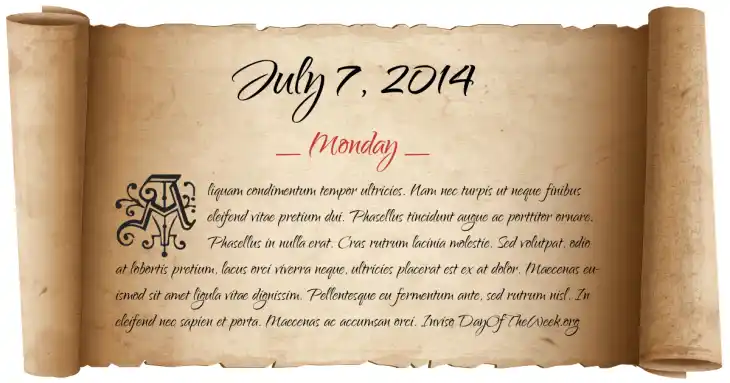 July 7, 2014
— Monday —
Aliquam condimentum tempor ultricies. Nam nec turpis ut neque finibus
eleifend vitae pretium dui. Phasellus tincidunt augue ac porttitor ornare.
Phasellus in nulla erat. Cras rutrum lacinia molestie. Sed volutpat, odio
at lobortis pretium, lacus orci viverra neque, ultricies placerat est ex at dolor. Maecenas eu-
ismod sit amet ligula vitae dignissim. Pellentesque eu fermentum ante, sed rutrum nisl. In
eleifend nec sapien et porta. Maecenas ac accumsan orci. Inviso DayOfTheWeek.org